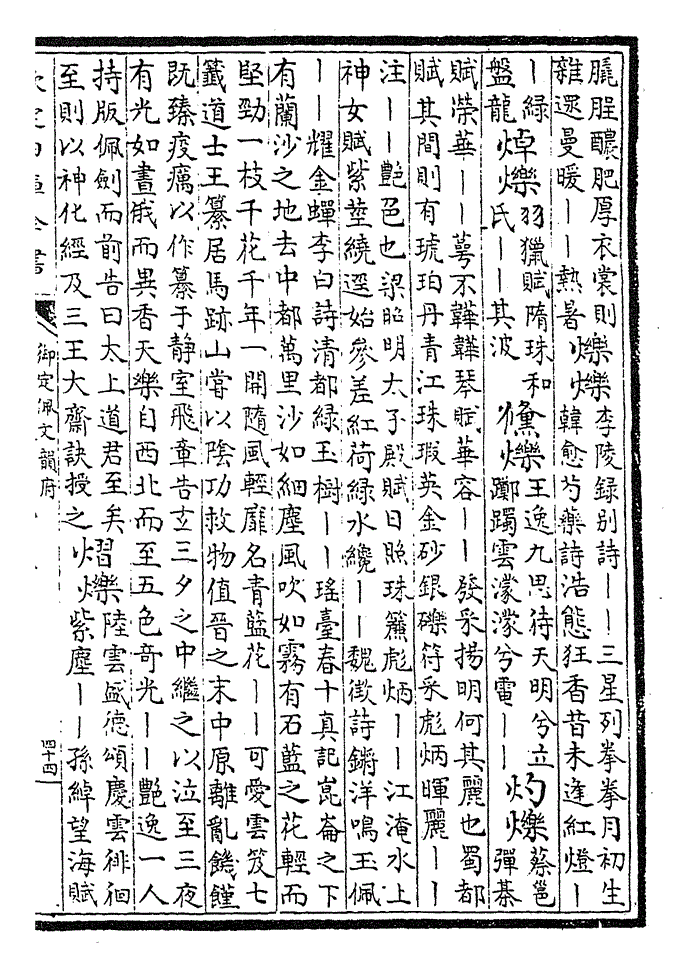 脭醲肥厚衣裳則
雜遝曼暖——熱暑
爍爍
李陵録别詩——三星列拳拳月初生
韓愈芍藥詩浩態狂香昔未逢紅燈—
—緑
盤龍
焯爍
羽獵賦隋珠和
氏——其波
儵爍
王逸九思待天明兮立
躑躅雲濛濛兮電——
灼爍
蔡邕
彈棊
賦榮華——萼不韡韡琴賦華容——發采揚明何其麗也蜀都
賦其間則有琥珀丹青江珠瑕英金砂銀礫符采彪炳暉麗——
注——艷色也梁昭明太子殿賦日照珠簾彪炳——江淹水上
神女賦紫莖繞逕始參差紅荷緑水纔——魏徵詩鏘洋鳴玉佩
——耀金蟬李白詩清都緑玉樹——瑶臺春十真記崑崙之下
有蘭沙之地去中都萬里沙如細塵風吹如霧有石藍之花輕而
堅勁一枝千花千年一開隨風輕靡名青藍花——可愛雲笈七
籤道士王纂居馬跡山嘗以陰功救物值晉之末中原離亂饑饉
既臻疫癘以作纂于静室飛章告玄三夕之中繼之以泣至三夜
有光如晝俄而異香天樂自西北而至五色奇光——艷逸一人
持版佩劍而前告曰太上道君至矣
至則以神化經及三王大齋訣授之
熠爍
陸雲盛德頌慶雲徘徊
紫塵——孫綽望海賦
御定佩文韻府
四十四